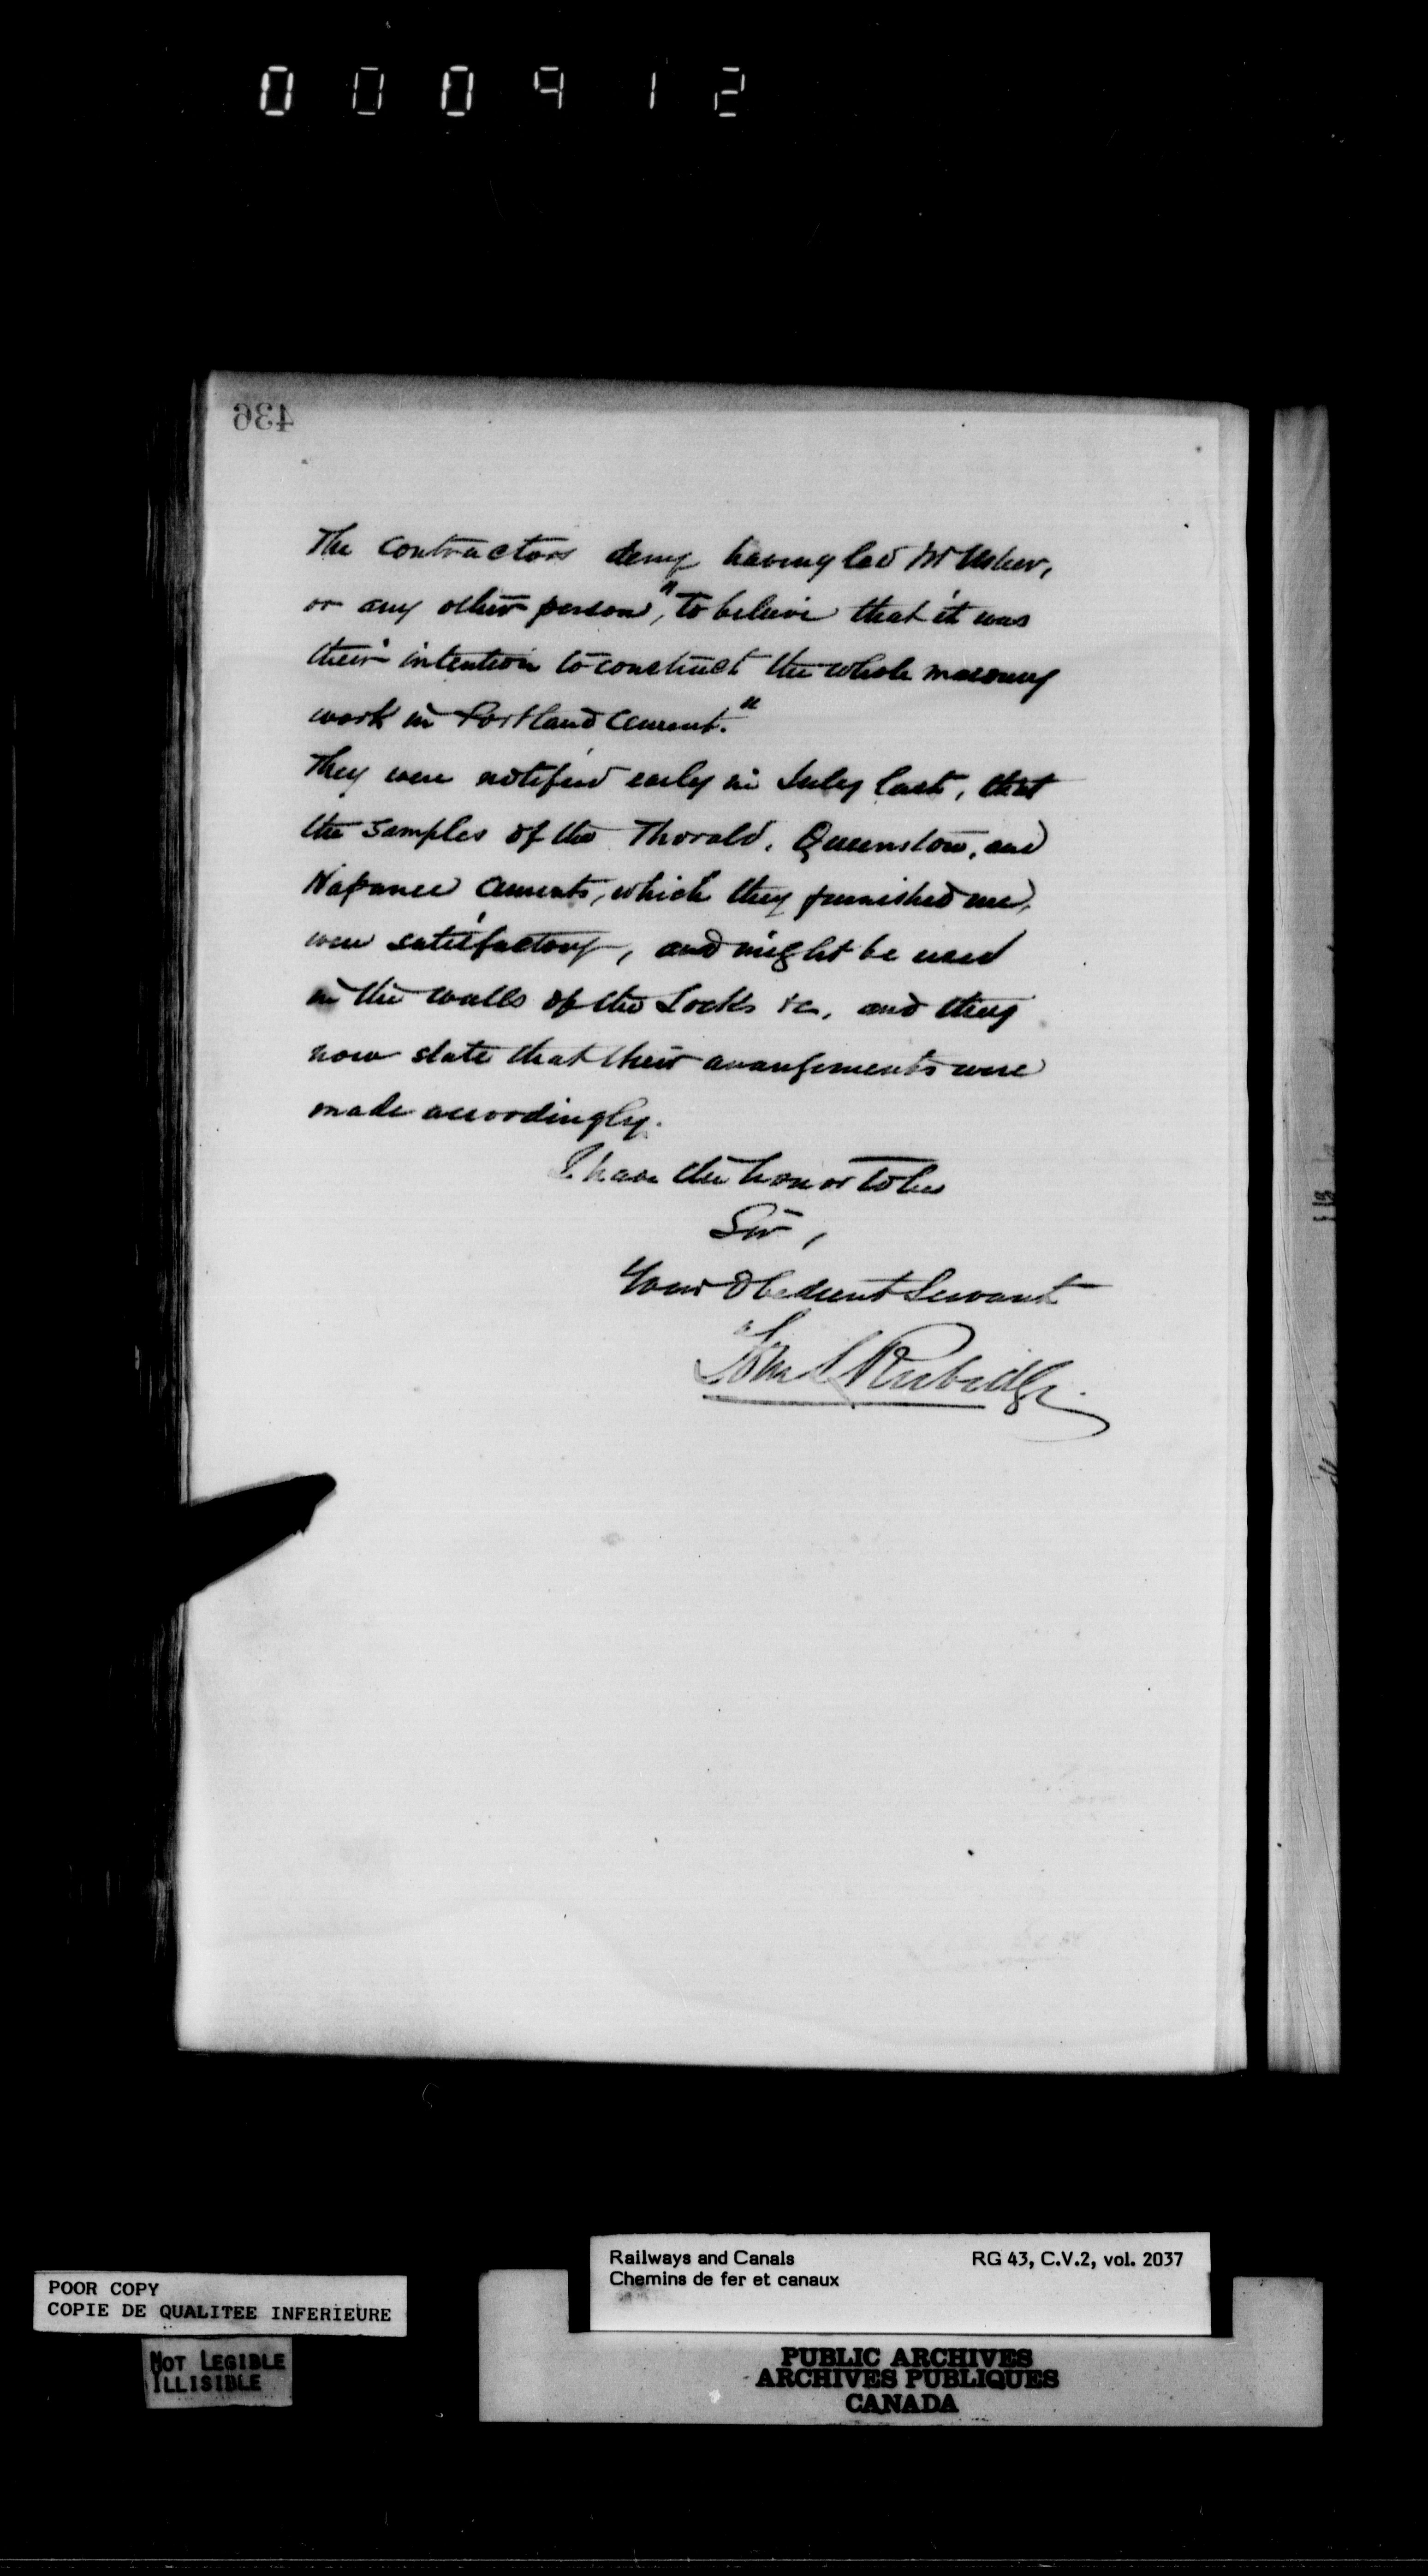 000912
436
The Contractors deny having led Mr Usher,
or any other person, "to believe that it was
their intention to construct the whole masonry
work in Portland Cement."
They were notified early in July last, that
the samples of the Thorold, Queenston, and
Napanee Cements, which they furnished me,
were satisfactory, and might be used
in the walls of the Locks &c, and they
now state that their arrangements were
made accordingly.
I have the honor to be
Sir,
Your Obedient Servant
Tom S Rubidge.
Railways and Canals
RG 43, C.V.2, vol. 2037
Chemins de fer et canaux
POOR COPY
COPIE DE QUALITEE INFERIEURE
NOT LEGIBLE
ILLISIBLE
PUBLIC ARCHIVES
ARCHIVES PUBLIQUES
CANADA